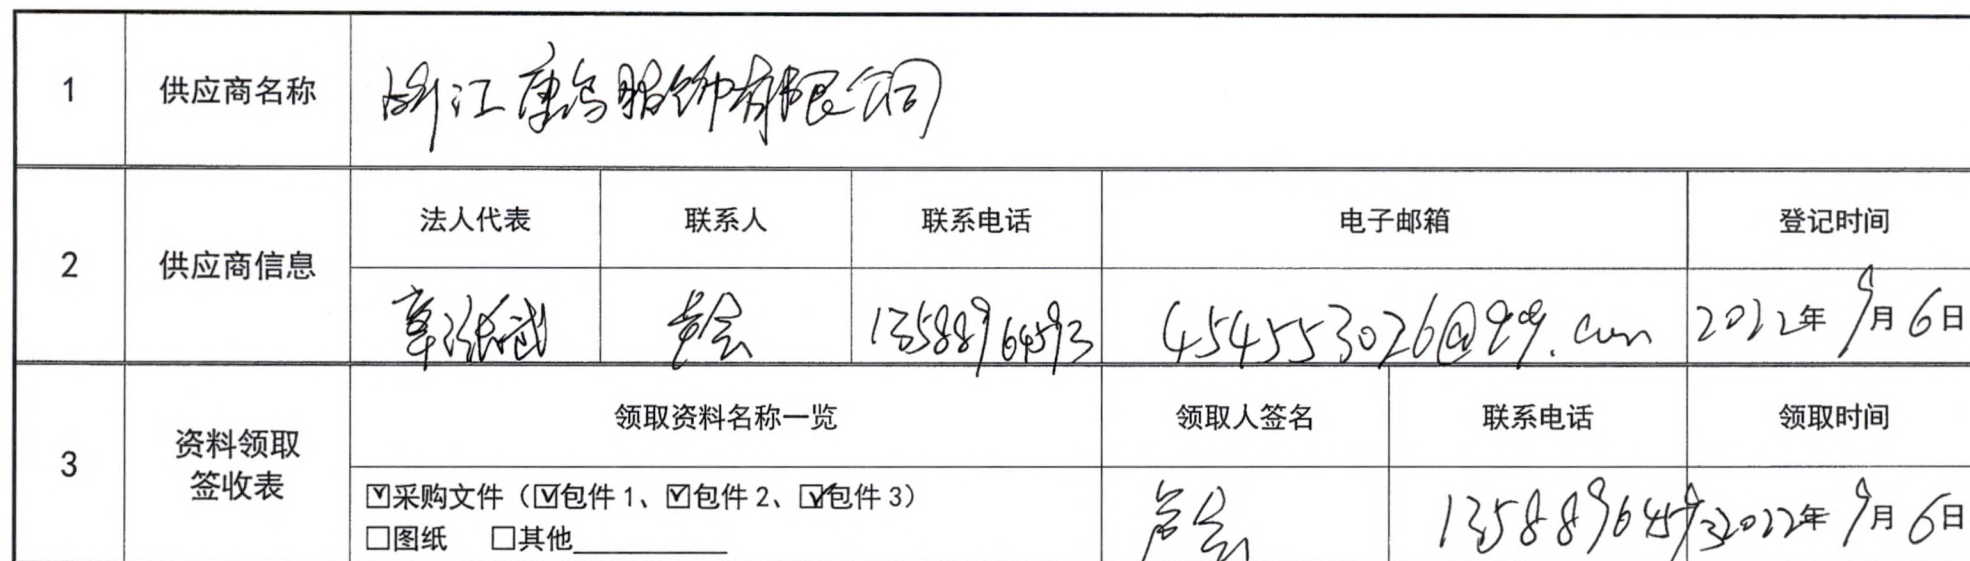 1 供应商名称 浙江唐鸟服饰有限公司
2 供应商信息
法人代表 联系人 联系电话 电子邮箱 登记时间
章 13588964593 454553026@qq.com 2022年9月6日
3 资料领取
签收表
领取资料名称一览 领取人签名 联系电话 领取时间
☑采购文件（☑包件1、☑包件2、☑包件3）
□图纸 □其他
13588964593 2022年9月6日